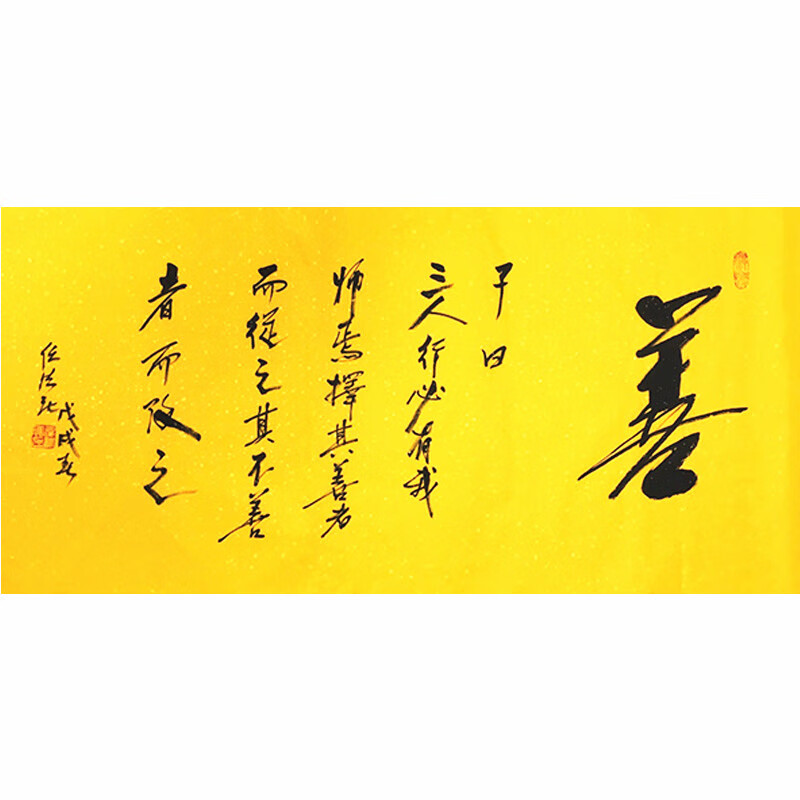 善
子曰
三人行必有我
师焉擇其善者
而從之其不善
者而改之
戊戌春
任法融